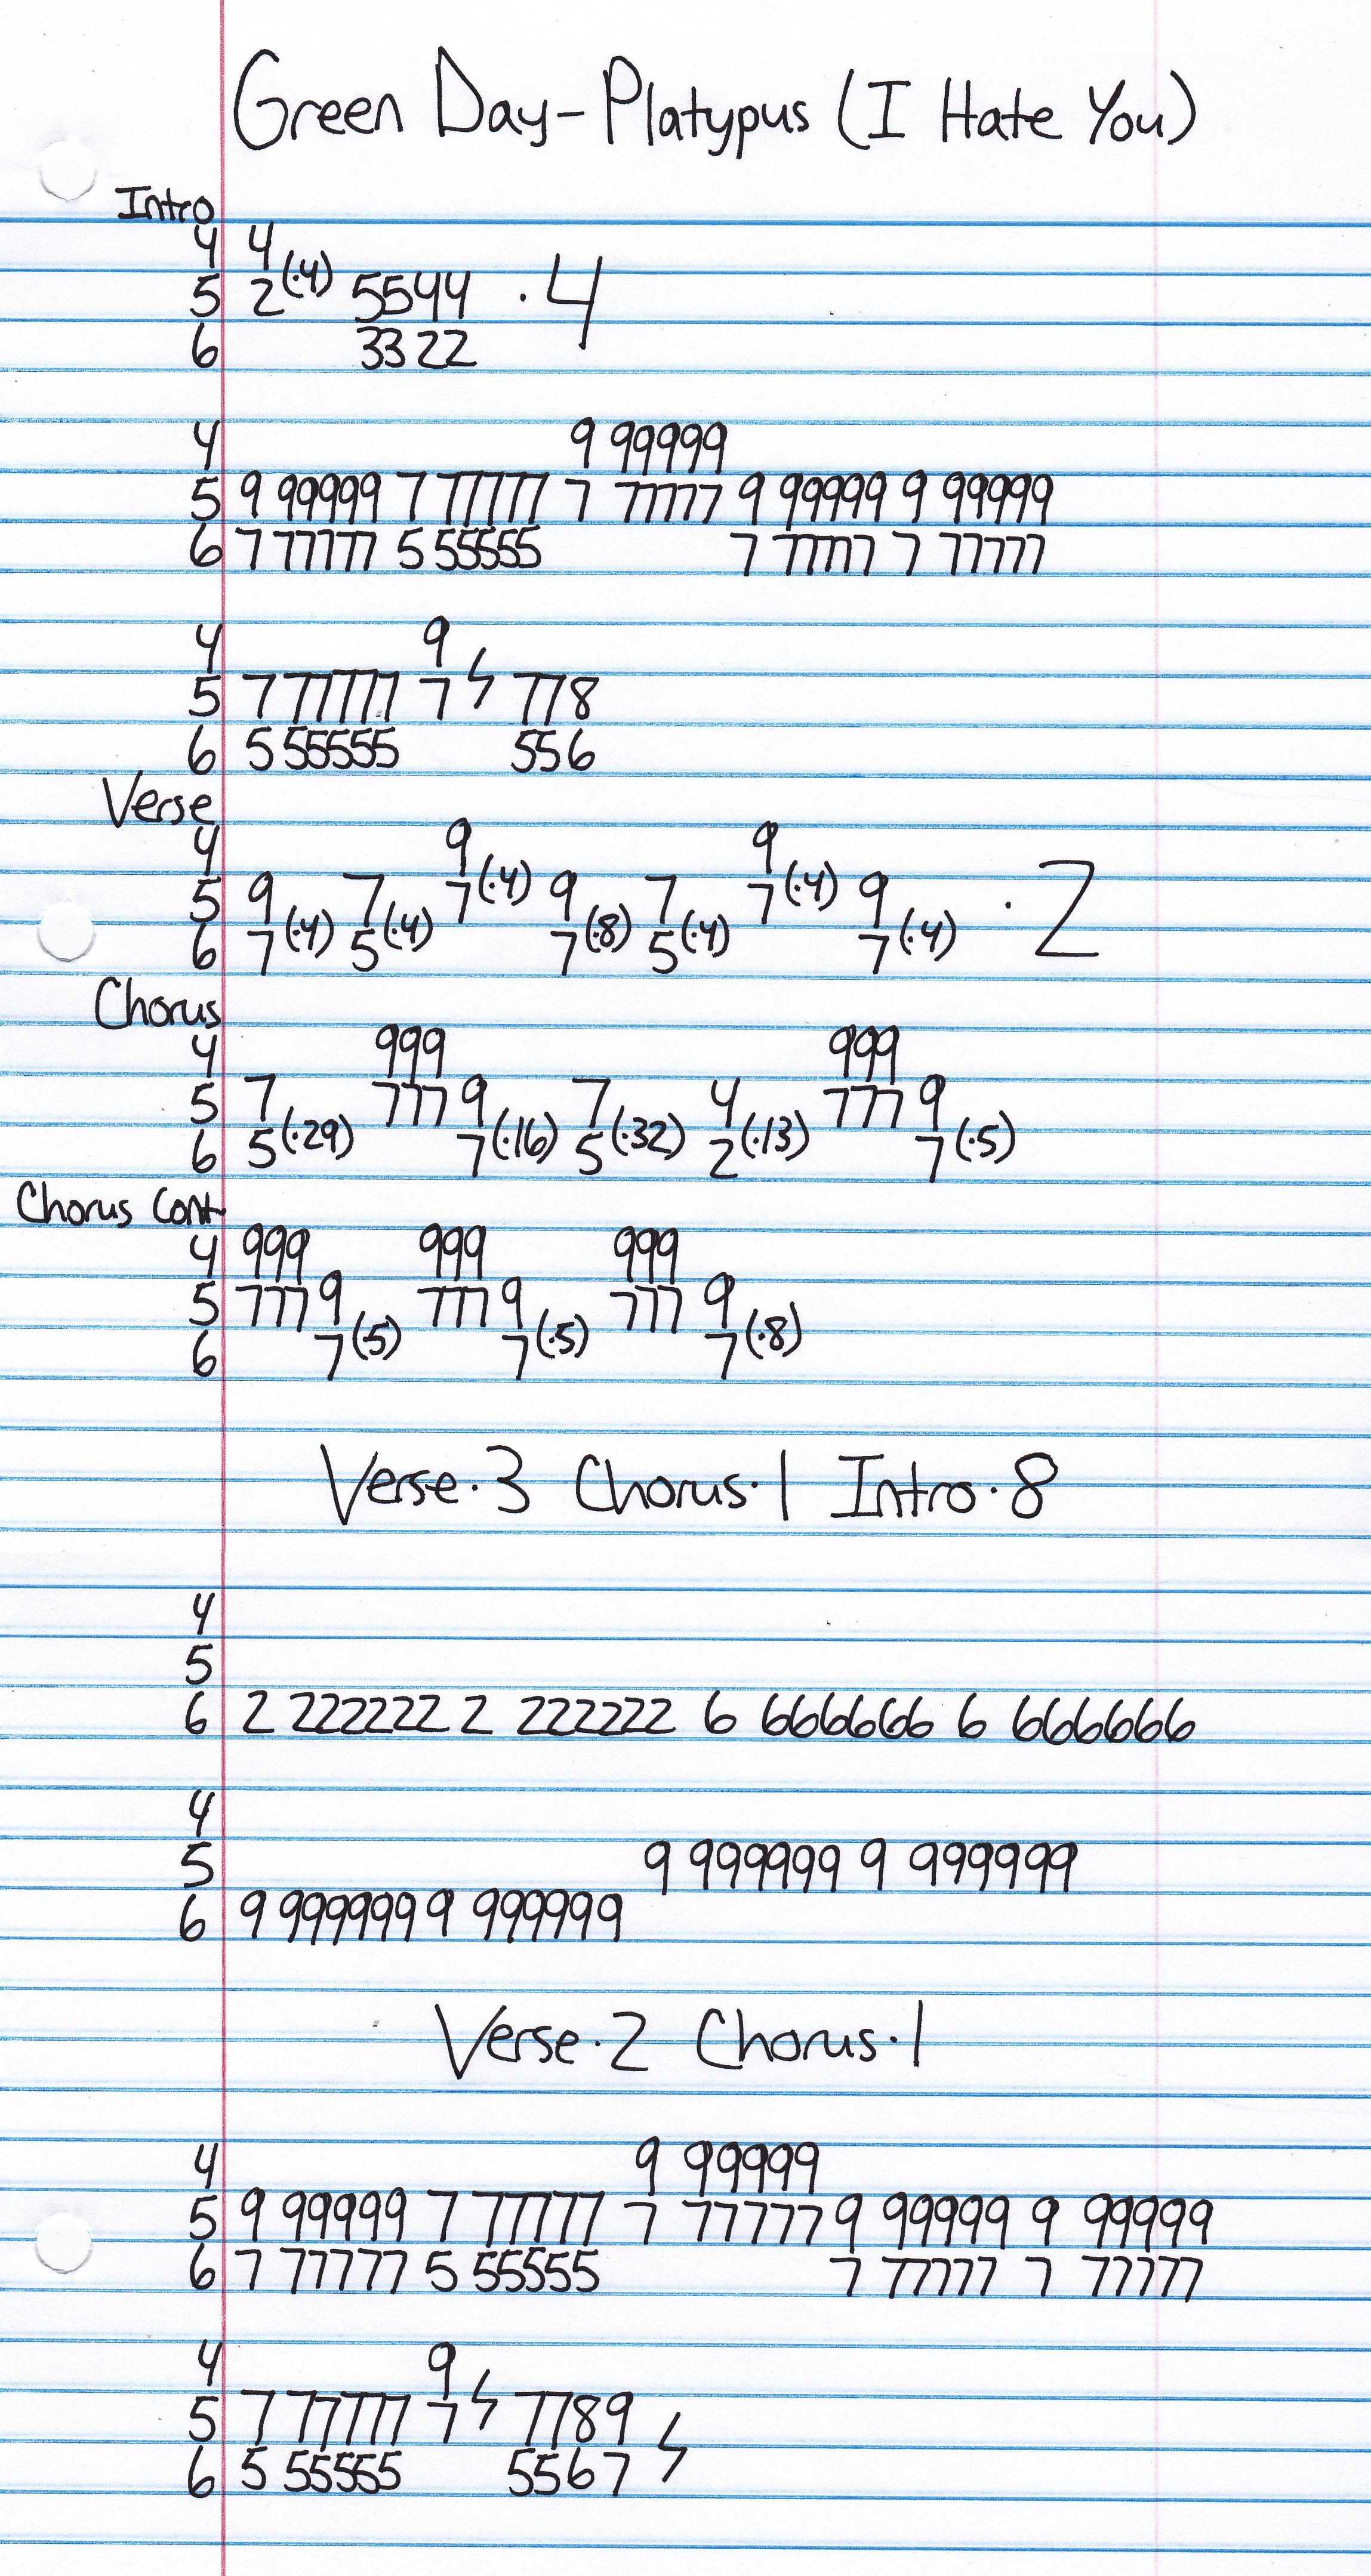 Green Day - Platypus (I Hate You)
Intro
4 4
5 2 (·4) 5544 · 4
6 3322
4 9 99999
5 9 99999 7 77777 7 77777 9 99999 9 99999
6 7 77777 5 55555 7 77777 7 77777
4 9
5 7 77777 7 778
6 5 55555 556
Verse
4 9 (·4) 9 (·4)
5 9 7 7 9 7 7 9 · 2
6 7 (·4) 5 (·4) 7 (·8) 5 (·4) 7 (·4)
Chorus
4 999 999
5 7 777 9 7 4 777 9
6 5 (·29) 7 (·16) 5 (·32) 2 (·13) 7 (·5)
Chorus Cont
4 999 999 999
5 777 9 777 9 777 9
6 7 (·5) 7 (·5) 7 (·8)
Verse·3 Chorus·1 Intro·8
4
5
6 2 222222 2 222222 6 666666 6 666666
4
5 9 999999 9 999999
6 9 999999 9 999999
Verse·2 Chorus·1
4 9 99999
5 9 99999 7 77777 7 77777 9 99999 9 99999
6 7 77777 5 55555 7 77777 7 77777
4 9
5 7 77777 7 7789
6 5 55555 5567